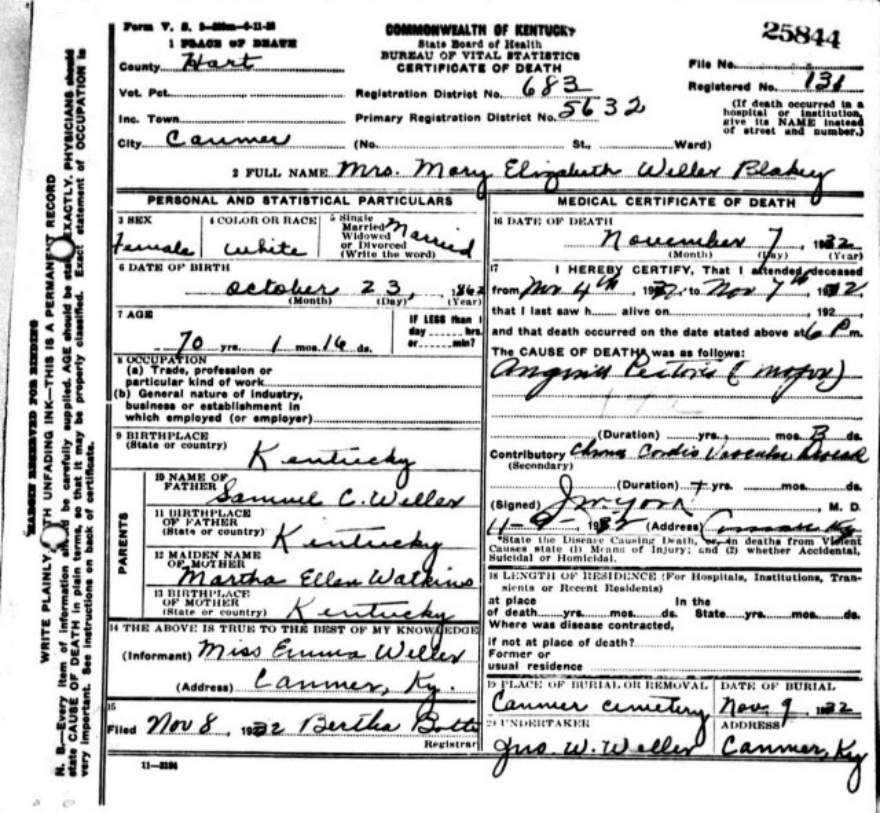 Form V. S.
25844
COMMONWEALTH OF KENTUCKY
State Board of Health
BUREAU OF VITAL STATISTICS
CERTIFICATE OF DEATH
1 PLACE OF DEATH
County Hart
Vot. Pct.
Inc. Town
City Canmer
Registration District No. 683
Primary Registration District No. 5632
(No. St., Ward)
File No.
Registered No. 131
(If death occurred in a
hospital or institution,
give its NAME instead
of street and number.)
2 FULL NAME Mrs. Mary Elizabeth Weller Blakey
PERSONAL AND STATISTICAL PARTICULARS
3 SEX
Female
4 COLOR OR RACE
White
5 Single
Married
Widowed
or Divorced
(Write the word)
Married
6 DATE OF BIRTH
October 23, 1862
(Month) (Day) (Year)
7 AGE
70 yrs. 1 mos. 16 ds.
IF LESS than 1
day hrs.
or min?
8 OCCUPATION
(a) Trade, profession or
particular kind of work
(b) General nature of industry,
business or establishment in
which employed (or employer)
9 BIRTHPLACE
(State or country)
Kentucky
PARENTS
10 NAME OF
FATHER
Samuel C. Weller
11 BIRTHPLACE
OF FATHER
(State or country)
Kentucky
12 MAIDEN NAME
OF MOTHER
Martha Ellen Watkins
13 BIRTHPLACE
OF MOTHER
(State or country)
Kentucky
14 THE ABOVE IS TRUE TO THE BEST OF MY KNOWLEDGE
(Informant) Miss Emma Weller
(Address) Canmer, Ky.
15
Filed Nov 8 1932 Bertha Botts
Registrar
11—3184
MEDICAL CERTIFICATE OF DEATH
16 DATE OF DEATH
November 7, 1932
(Month) (Day) (Year)
17 I HEREBY CERTIFY, That I attended deceased
from Nov 4th, 1932, to Nov 7th, 1932,
that I last saw h alive on , 192
and that death occurred on the date stated above at 6 P m.
The CAUSE OF DEATH was as follows:
Angina Pectoris (Major)
(Duration) yrs. mos. 3 ds.
Contributory Chronic Cordio Vascular Disease
(Secondary)
(Duration) + yrs. mos. ds.
(Signed) J M York, M. D.
11-9-, 1932 (Address) Ky
*State the Disease Causing Death, or, in deaths from Violent
Causes state (1) Means of Injury; and (2) whether Accidental,
Suicidal or Homicidal.
18 LENGTH OF RESIDENCE (For Hospitals, Institutions, Transients
or Recent Residents)
at place In the
of death yrs. mos. ds. State yrs. mos. ds.
Where was disease contracted,
if not at place of death?
Former or
usual residence
19 PLACE OF BURIAL OR REMOVAL
Canmer cemetery
DATE OF BURIAL
Nov. 9 1932
20 UNDERTAKER
Jno. W. Weller
ADDRESS
Canmer, Ky
MARGIN RESERVED FOR BINDING
WRITE PLAINLY, WITH UNFADING INK—THIS IS A PERMANENT RECORD
N. B.—Every item of information should be carefully supplied. AGE should be stated EXACTLY. PHYSICIANS should
state CAUSE OF DEATH in plain terms, so that it may be properly classified. Exact statement of OCCUPATION is
very important. See instructions on back of certificate.